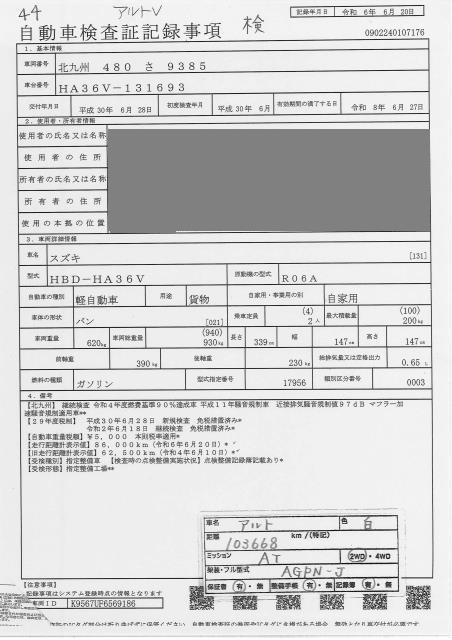 44
アルトV
検
記録年月日 令和 6年 6月 20日
自動車検査証記録事項
0902240107176
1. 基本情報
車両番号 北九州 480 さ 9385
車台番号 HA36V-131693
交付年月日 平成 30年 6月 28日 初度検査年月 平成 30年 6月 有効期間の満了する日 令和 8年 6月 27日
2. 使用者・所有者情報
使用者の氏名又は名称
使用者の住所
所有者の氏名又は名称
所有者の住所
使用の本拠の位置
3. 車両詳細情報
車名 スズキ [131]
型式 HBD-HA36V 原動機の型式 R06A
自動車の種別 軽自動車 用途 貨物 自家用・事業用の別 自家用
車体の形状 バン [021] 乗車定員 (4) 2人 最大積載量 (100) 200kg
車両重量 620kg 車両総重量 (940) 930kg 長さ 339cm 幅 147cm 高さ 147cm
前軸重 390kg 後軸重 230kg 総排気量又は定格出力 0.65 L
燃料の種類 ガソリン 型式指定番号 17956 類別区分番号 0003
4. 備考
【北九州】 継続検査 令和4年度燃費基準90%達成車 平成11年騒音規制車 近接排気騒音規制値97dB マフラー加
速騒音規制適用車**
【29年度税制】 平成30年6月28日 新規検査 免税措置済み*
令和2年6月18日 継続検査 免税措置済み*
【自動車重量税額】¥5,000 本則税率適用*
【走行距離計表示値】86,000km(令和6年6月20日)*
【旧走行距離計表示値】62,500km(令和4年6月10日)*
【受検種別】指定整備車 【検査時の点検整備実施状況】点検整備記録簿記載あり*
【受検形態】指定整備工場**
車名 アルト 色 白
距離 103668 km/(特記)
ミッション AT 2WD・4WD
架装・フル型式 AGPN-J
保証書 有・無 整備手帳 有・無 記録簿 有・無
【注意事項】
記録事項はシステム登録時点の情報となります
車両ID K9567UF6569186